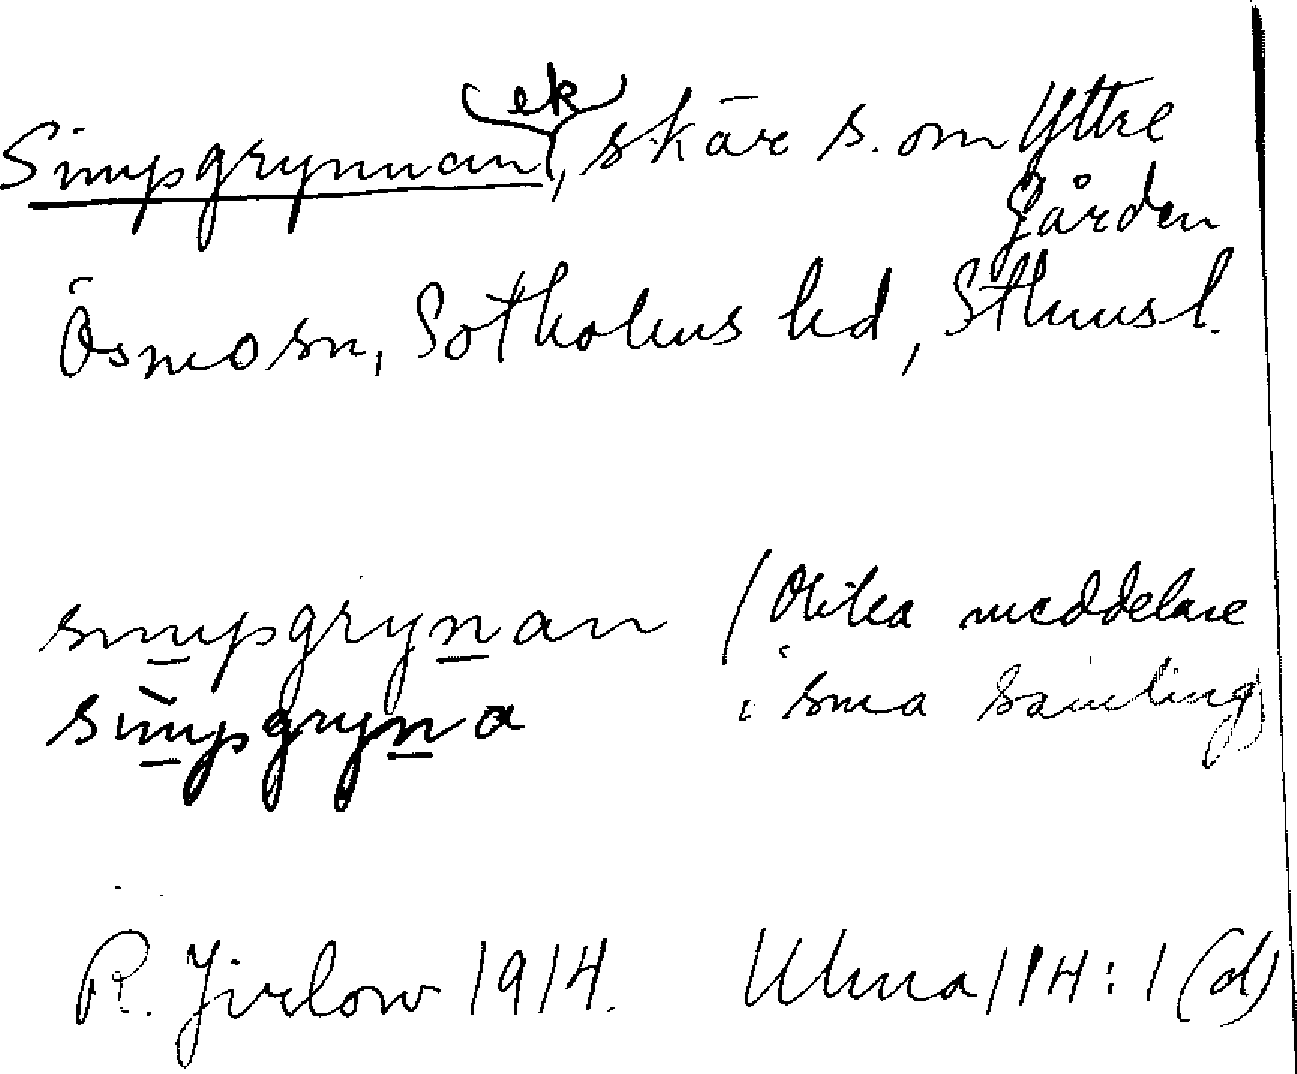 ek
Simpgrynnan, skär s. om Yttre
Gården
Ösmo sn, Sotholms hd, Sthmsl.
simpgrynan (Olika meddelare
simpgryna i sma samling)
R. Jirlow 1914. Ulma 114:1 (d)